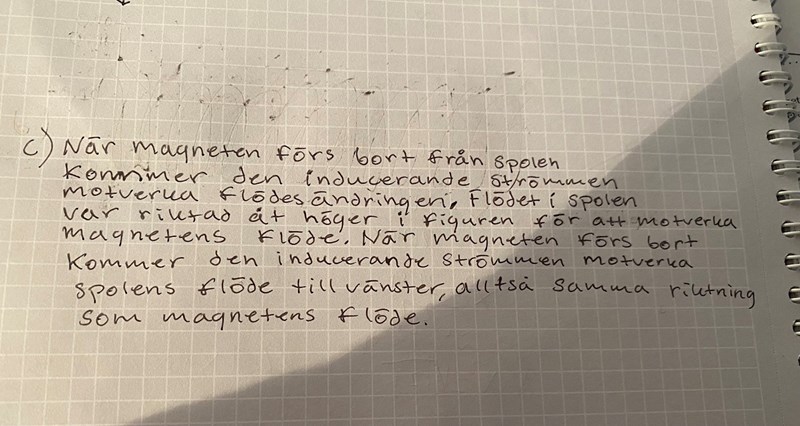 c) När magneten förs bort från spolen
kommer den inducerande strömmen
motverka flödesändringen. Flödet i spolen
var riktad åt höger i figuren för att motverka
magnetens flöde. När magneten förs bort
kommer den inducerande strömmen motverka
spolens flöde till vänster, alltså samma riktning
som magnetens flöde.